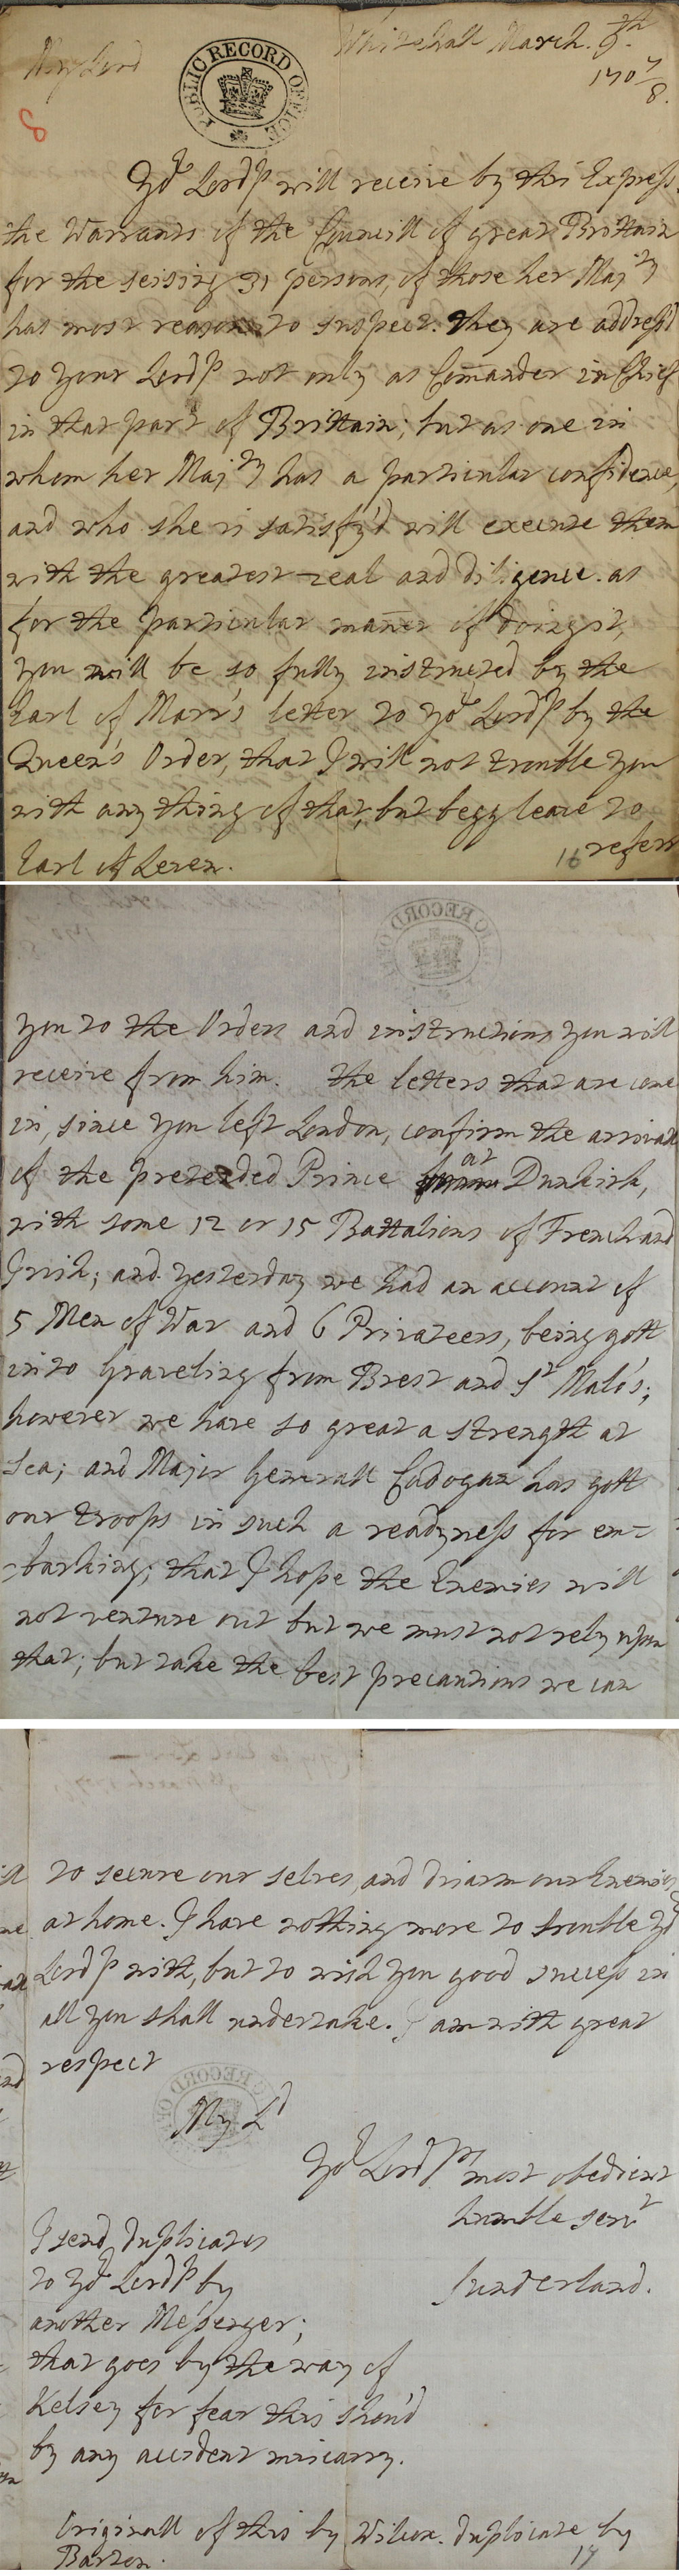 Whitehall March. 9th.
My Lord
1707/8.
PUBLIC RECORD OFFICE
8
Yor Lordp will receive by this Express.
the Warrants of the Councill of great Brittain
for the seising 31 persons, of those her Majty
has most reason to suspect. they are address'd
to your Lordp not only as Com̄ander in Chief
in that part of Brittain; but as one in
whom her Majty has a particular confidence,
and who she is satisfy'd will execute them
with the greatest zeal and diligence. as
for the particular man̄er of doing it,
you will be so fully instructed by the
Earl of Marr's letter to yor Lordp by the
Queen's Order, that I will not trouble you
with any thing of that, but begg leave to
referr
Earl of Leven.
16
you to the Orders and instructions you will
receive from him. the letters that are come
in, since you left London, confirm the arrivall
of the pretended Prince at Dunkirk,
with some 12 or 15 Battalions of French and
Irish; and yesterday we had an account of
5 Men of War and 6 Privateers, being gott
into Graveling from Brest and St Malo's;
however we have so great a strength at
sea; and Major Generall Cadogan has gott
our troops in such a readyness for em=
=barking; that I hope the Enemies will
not venture out but we must not rely upon
that; but take the best precautions we can
to secure our selves, and disarm our Enemies
at home. I have nothing more to trouble yor
Lordp with, but to wish you good success in
all you shall undertake. I am with great
respect
My Ld
Yor Lordps most obedient
humble servt
Sunderland.
I send duplicates
to yor Lordp by
another Messenger;
that goes by the way of
Kelsey for fear this shou'd
by any accident miscarry.
Originall of this by Wilcox. duplicate by
Barton.
17